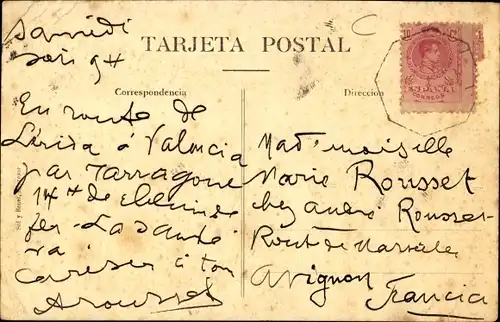 Samedi
soir 9H
TARJETA POSTAL
Correspondencia
En route de
Lérida à Valencia
par Tarragone
14H de chemin de
fer - La santé
va
Caresses à ton
ARousset
Dirección
Mad'moiselle
Marie Rousset
chez André Rousset
Rout de Marseille
Avignon
Francia